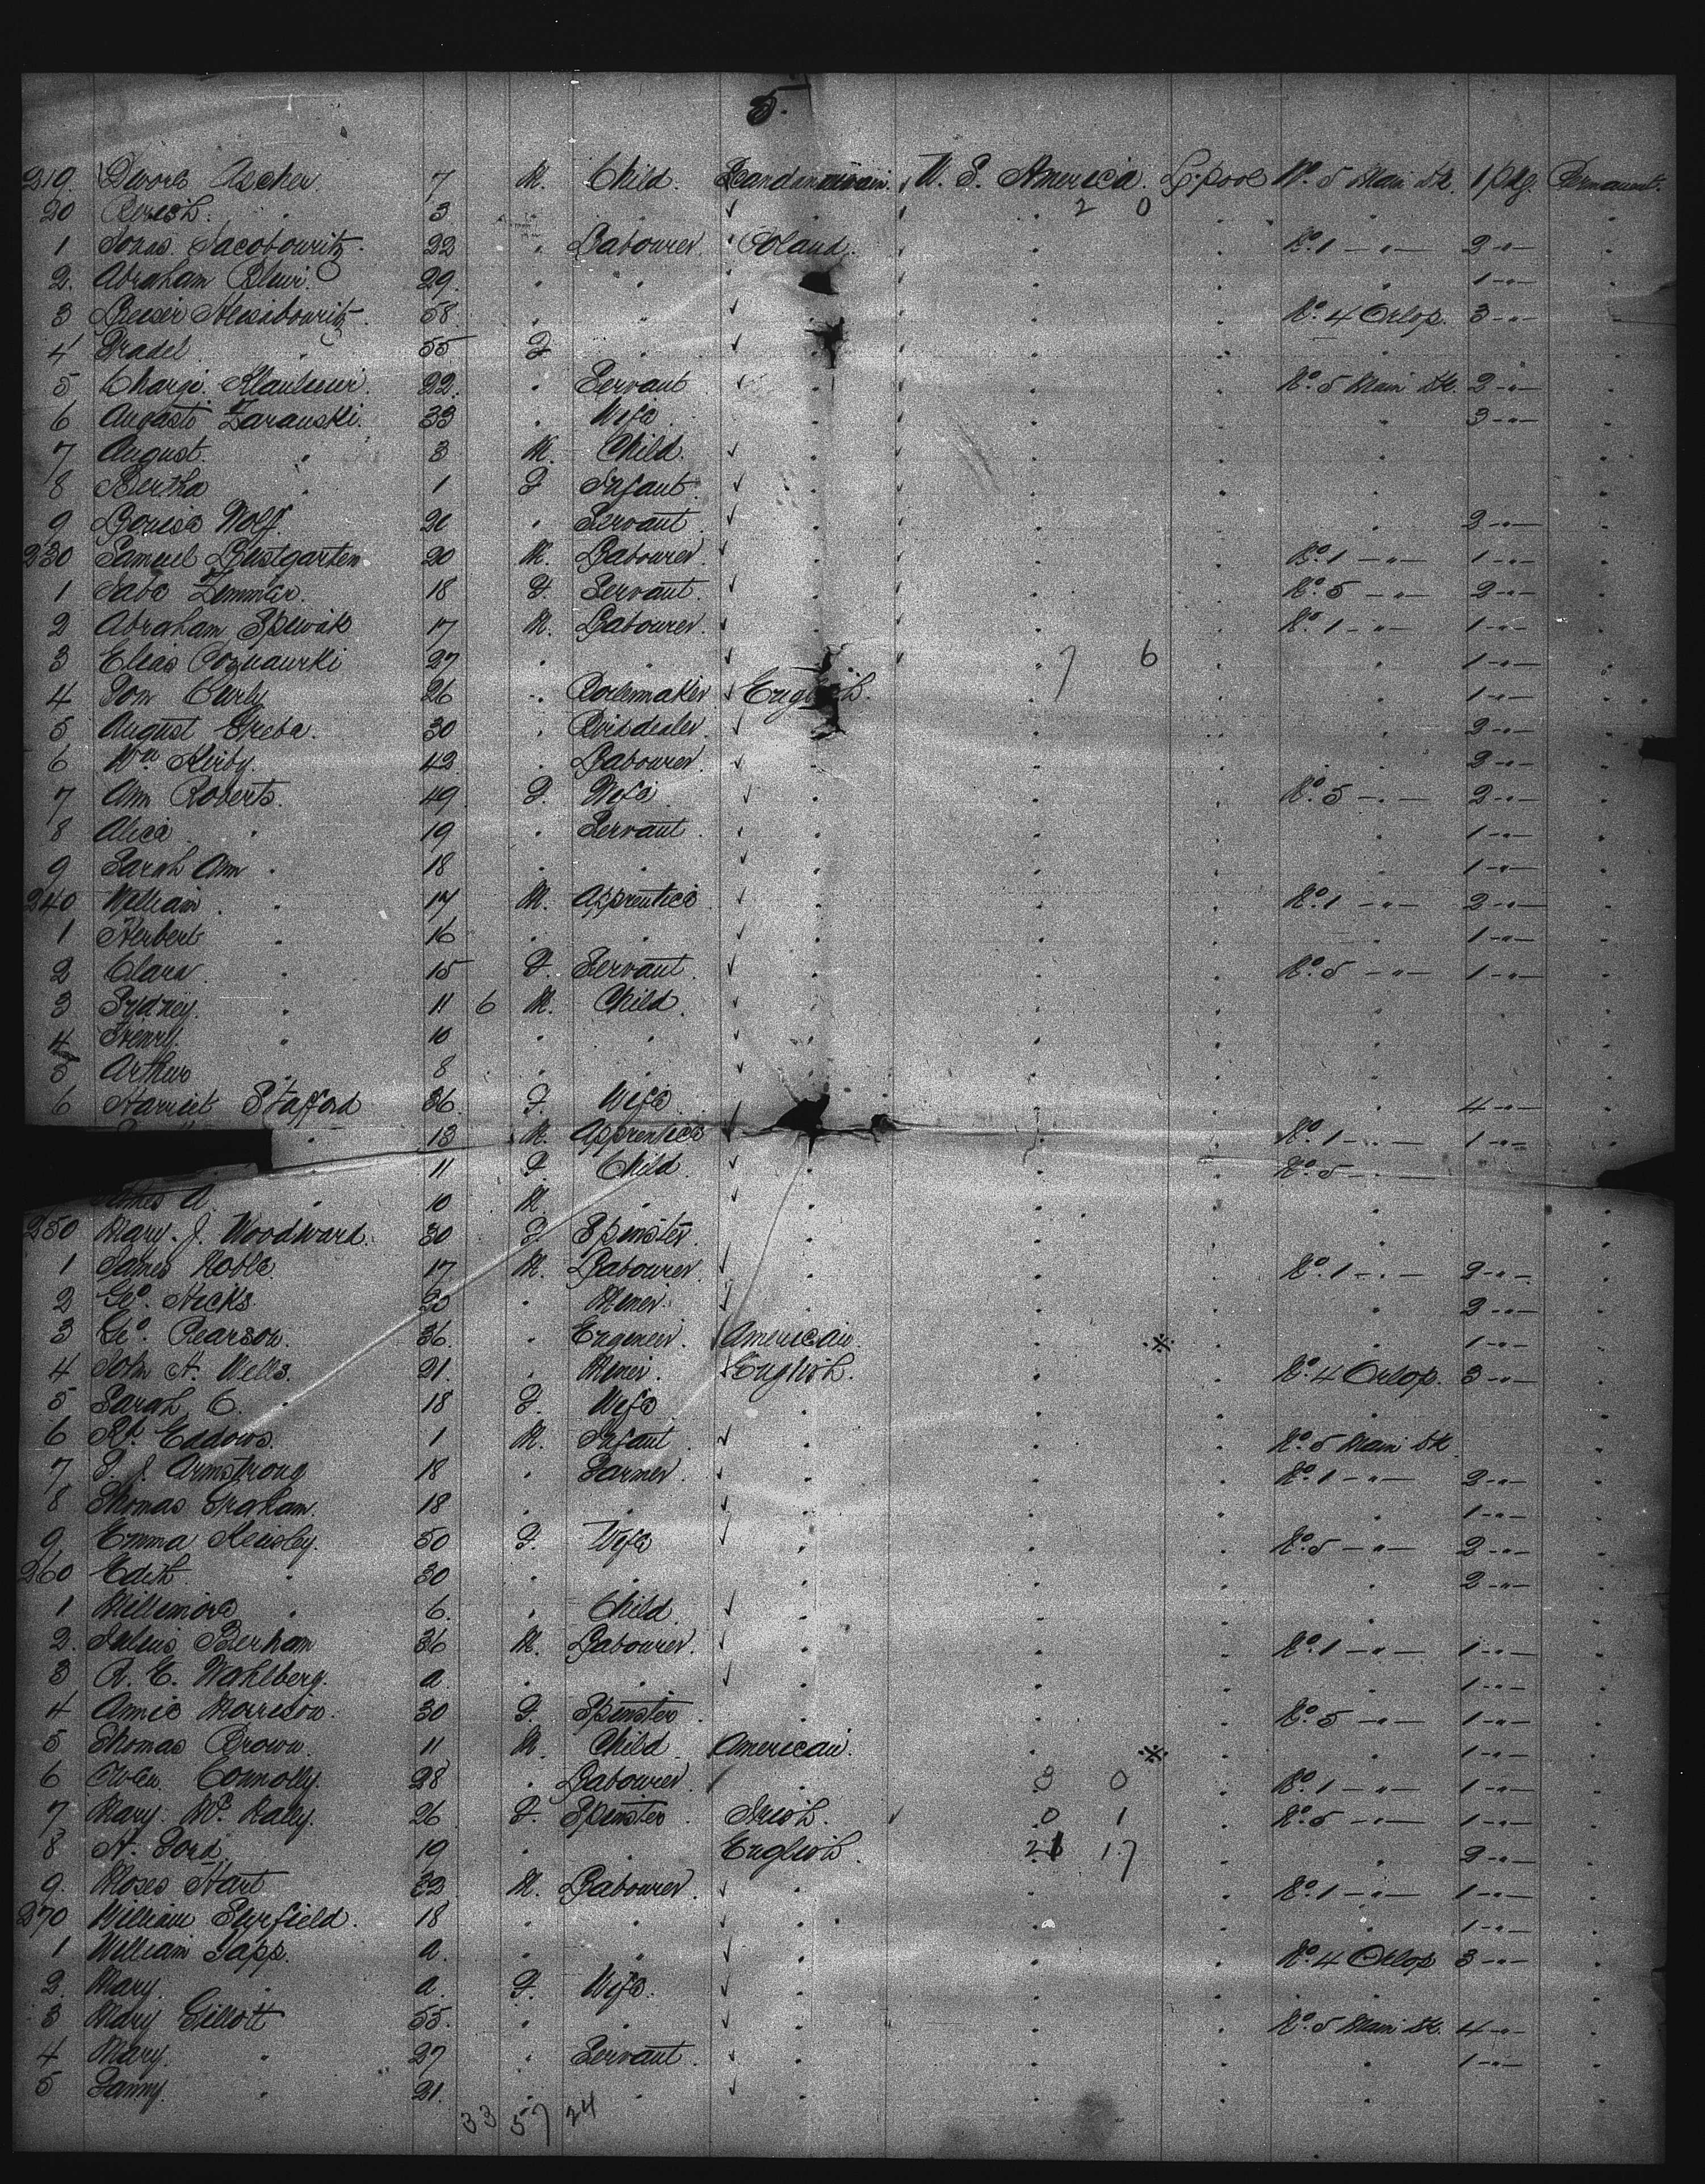 5.
219 Dwore Ascher. 7 M. Child. Scandinavian. U. S. America. L'pool No. 5 Main Dk. 1 pkg. Permanent.
20 Beresh. " 3 " " " " 2 0 " "
1 Jonas Jacobowitz. 22 " Labourer. Poland. " " No. 1 — " — 2 - " -
2. Abraham 29. " " " " " " 1 - " -
3 58 " " " " " No. 4 Orlop. 3 - " -
4 Pradel " 55 F " " " " "
5 22. " Servant " " " No. 5 Main Dk. 2 - " -
6 Augasti Zaranski. 33 " Wife. " " " " 3 - " -
7 August. " 3 M. Child. " " " "
8 Bertha " 1 F Infant. " " " "
9 Louisa Wolf. 20 " Servant " " " " 2 - " -
230 Samuel Lustgarten 20 M. Labourer. " " " No. 1 — " — 1 - " -
1 Zemmler. 18 F. Servant. " " " No. 5 — " — 2 - " -
2 Abraham Spewak 17 M. Labourer. " " " No. 1 — " — 1 - " -
3 Elias Poznanski 27 " " " 7 6 " " 1 - " -
4 Tom Curly 26 " Boilermaker English. " " " 1 - " -
5 August 30 " " " " " 2 - " -
6 Wm. Kirby. 42 " Labourer. " " " " 2 - " -
7 Ann Roberts. 49 F. Wife " " " No. 5 — " — 2 - " -
8 Alice " 19 " Servant. " " " " 1 - " -
9 Sarah Ann " 18 " " " " " " 1 - " -
240 William " 17 M. Apprentice " " " No. 1 — " — 2 - " -
1 Herbert " 16 " " " " " " 1 - " -
2 Clara " 15 F. Servant. " " " No. 5 — " — 1 - " -
3 Sydney. " 11 6 M. Child. " " " "
4 Henry. " 10 " " " " " "
5 Arthur " 8 " " " " " "
6 Harriet Stafford 36 F. Wife " " " " 4 - " -
" 13 M. Apprentice " " " No. 1 — " — 1 - " -
11 F Child. " " " No. 5 — " —
A. " 10 M. " " " " "
250 Mary. J. Woodward. 30 F. Spinster. " " " "
1 James Noble. 17 M. Labourer. " " " No. 1 — " — 2 - " -
2 Geo. Hicks. 20 " Miner. " " " " 2 - " -
3 Geo. Pearson. 36. " Engineer. American. " ※ " " 1 - " -
4 John H. Wells. 21. " Miner. English. " " No. 4 Orlop. 3 - " -
5 Sarah C. " 18 F. Wife " " " "
6 Rt. Eddows. 1 M. Infant " " " No. 5 Main Dk
7 Armstrong 18 " Farmer. " " " No. 1 — " — 2 - " -
8 Thomas Graham. 18 " " " " " " 1 - " -
9 Emma Keisley. 50 F. Wife " " " No. 5 — " — 2 - " -
260 Edith " 30 " " " " " " 2 - " -
1 " 6. " Child. " " " "
2. Julius Berham 36 M. Labourer. " " " No. 1 — " — 1 - " -
3 R. E. Wahlberg. a " " " " " " 1 - " -
4 Annie Morrison. 30 F. Spinster " " " No. 5 — " — 1 - " -
5 Thomas Brown. 11 M. Child American. " ※ " " 1 - " -
6 Owen Connolly. 28 " Labourer. " 3 0 " No. 1 — " — 1 - " -
7 Mary. 26 F. Spinster Irish. 0 1 " No. 5 — " — 1 - " -
8 19 " " English. 21 17 " " 2 - " -
9. Moses Hart 32 M. Labourer. " " " No. 1 — " — 1 - " -
270 William Surfield. 18 " " " " " " 1 - " -
1 William Tapp. a. " " " " " No. 4 Orlop 3 - " -
2. Mary. " a. F. Wife. " " " "
3 Mary Gillott 55. " " " " " No. 5 Main Dk. 4 - " -
4 Mary. " 27 " Servant. " " " " 1 - " -
5 Fanny. " 21. " " " " "
33 57 24